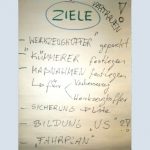 ZIELE
VERTRAUEN!
- "WERKZEUGKOFFER" gepackt
- KÜMMERER festlegen
- MAßNAHMEN festlegen
- Laufin
Werkzeugkoffer
- SICHERUNG d.
- BILDUNG "US"
- "FAHRPLAN"